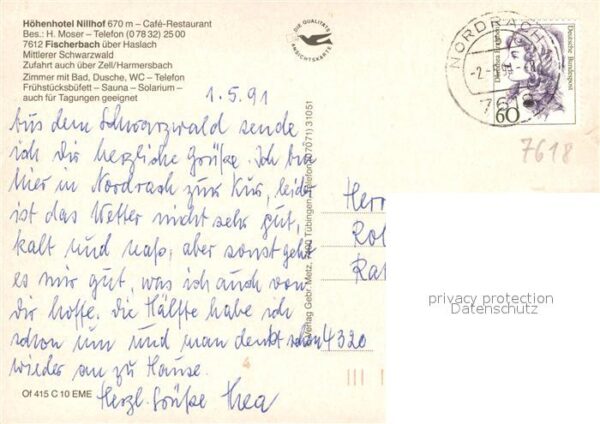 Höhenhotel Nillhof 670 m – Café-Restaurant
Bes.: H. Moser – Telefon (0 78 32) 25 00
7612 Fischerbach über Haslach
Mittlerer Schwarzwald
Zufahrt auch über Zell/Harmersbach
Zimmer mit Bad, Dusche, WC – Telefon
Frühstücksbüfett – Sauna – Solarium –
auch für Tagungen geeignet
1.5.91
Aus dem Schwarzwald sende
ich Dir herzliche Grüße. Ich bin
hier in Nordrach zur Kur, leider
ist das Wetter nicht sehr gut,
kalt und naß, aber sonst geht
es mir gut, was ich auch von
dir hoffe. Die Hälfte habe ich
schon um und man denkt schon
wieder an zu Hause.
Herzl. Grüße Thea
Of 415 C 10 EME
DIE QUALITÄTS
ANSICHTSKARTE
Verlag Gebr. Metz, Tübingen, Telefon (07071) 31051
NORDRACH
7618
Deutsche Bundespost
60
7618
Herr
4320
privacy protection
Datenschutz